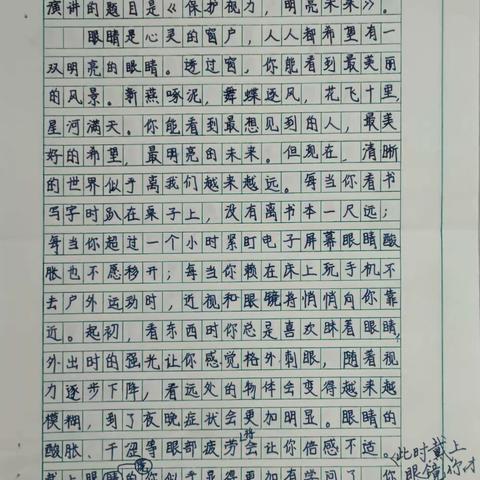 演讲的题目是《保护视力,明亮未来》。
眼睛是心灵的窗户,人人都希望有一
双明亮的眼睛。透过窗,你能看到最美丽
的风景。新燕啄泥,舞蝶逐风,花飞十里,
星河满天。你能看到最想见到的人,最美
好的希望,最明亮的未来。但现在,清晰
的世界似乎离我们越来越远。每当你看书
写字时趴在桌子上,没有离书本一尺远;
每当你超过一个小时紧盯电子屏幕眼睛酸
胀也不愿移开;每当你赖在床上玩手机不
去户外运动时,近视和眼镜将悄悄向你靠
近。起初,看东西时你总是喜欢眯着眼睛,
外出时的强光让你感觉格外刺眼,随着视
力逐步下降,看远处的物体会变得越来越
模糊,到了夜晚症状会更加明显。眼睛的
酸胀、干涩等眼部疲劳将会让你倍感不适。
此时戴上
眼镜你才
戴上眼睛的你似乎显得更加有学问了,你